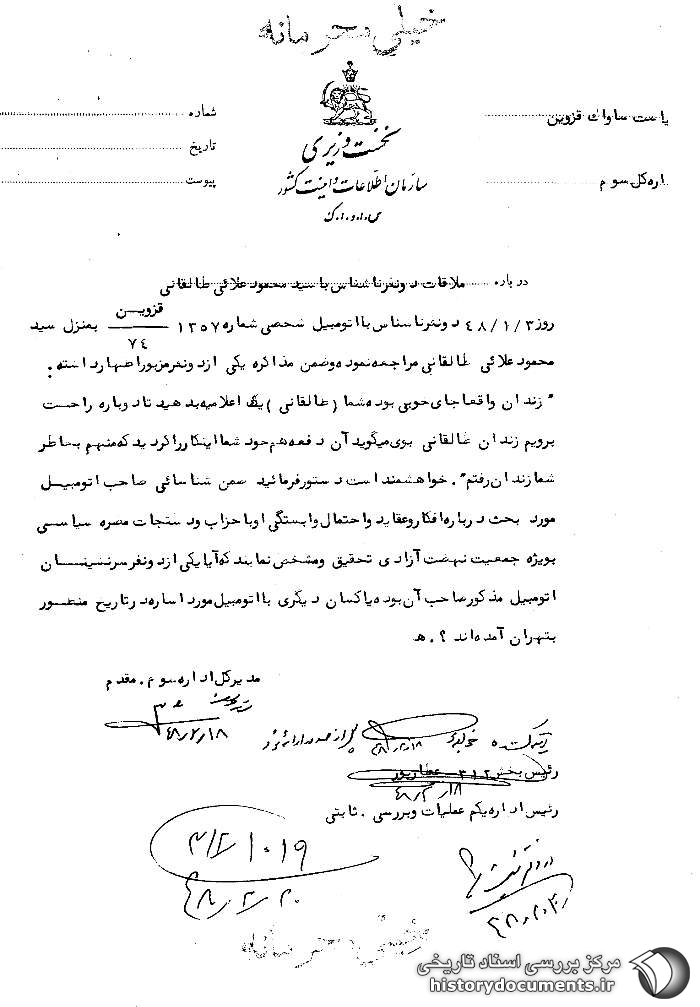 خیلی محرمانه
یاست ساواک قزوین
شماره
نخست وزیری
تاریخ
اره کل سوم
سازمان اطلاعات و امنیت کشور
پیوست
س.ا.و.ا.ک
درباره ملاقات دونفر ناشناس با سید محمود علائی طالقانی
روز ۴۸/۱/۳ دونفر ناسناس با اتومبیل شخصی شماره ۱۳۵۷ قزوین / ۷۴ بمنزل سید
محمود علائی طالقانی مراجعه نموده و ضمن مذاکره یکی ازدونفر مزبور اظهار داشته :
" زندان واقعا جای خوبی بوده شما ( طالقانی ) یک اعلامیه بدهید تا دوباره راحت
برویم زندان طالقانی بوی میگوید آن دفعه هم خود شما اینکار را کردید که منهم بخاطر
شما زندان رفتم " . خواهشمند است دستور فرمائید ضمن شناسائی صاحب اتومبیل
مورد بحث درباره افکار و عقاید و احتمال وابستگی او با حزاب و دستجات مضره سیاسی
بویژه جمعیت نهضت آزادی تحقیق و مشخص نمایند که آیا یکی ازدونفر سرنشینان
اتومبیل مذکور صاحب آن بوده یا کسان دیگری با اتومبیل مورد اشاره در تاریخ منظور
بتهران آمده اند ؟ . ه
مدیرکل اداره سوم . مقدم
۴۸/۲/۱۸
۴۸/۲/۱۸
رئیس بخش ۳۱۲ عطارپور
۴۸/۲/۱۸
رئیس اداره یکم عملیات و بررسی . ثابتی
۳۱۲/۱۰۱۹
۴۸/۲/۲۰
۴۸/۲/۲۰
خیلی محرمانه
مرکز بررسی اسناد تاریخی
historydocuments.ir